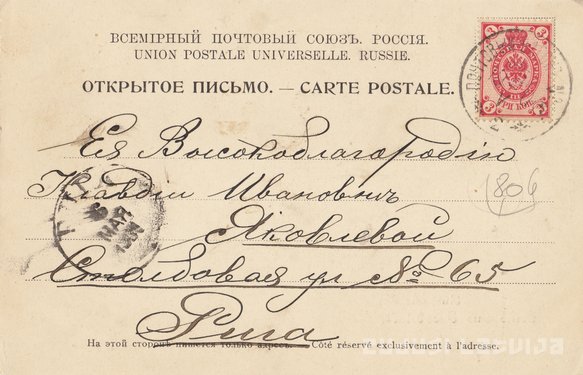 ВСЕМІРНЫЙ ПОЧТОВЫЙ СОЮЗЪ. РОССІЯ.
UNION POSTALE UNIVERSELLE. RUSSIE.
ОТКРЫТОЕ ПИСЬМО. — CARTE POSTALE.
3 3
3 ТРИ КОП. 3
Ея Высокоблагородію
Клавдіи Ивановнѣ
806
Яковлевой
МАР
Столбовая ул № 65
Рига
На этой сторонѣ пишется только адресъ. — Côté réservé exclusivement à l'adresse.